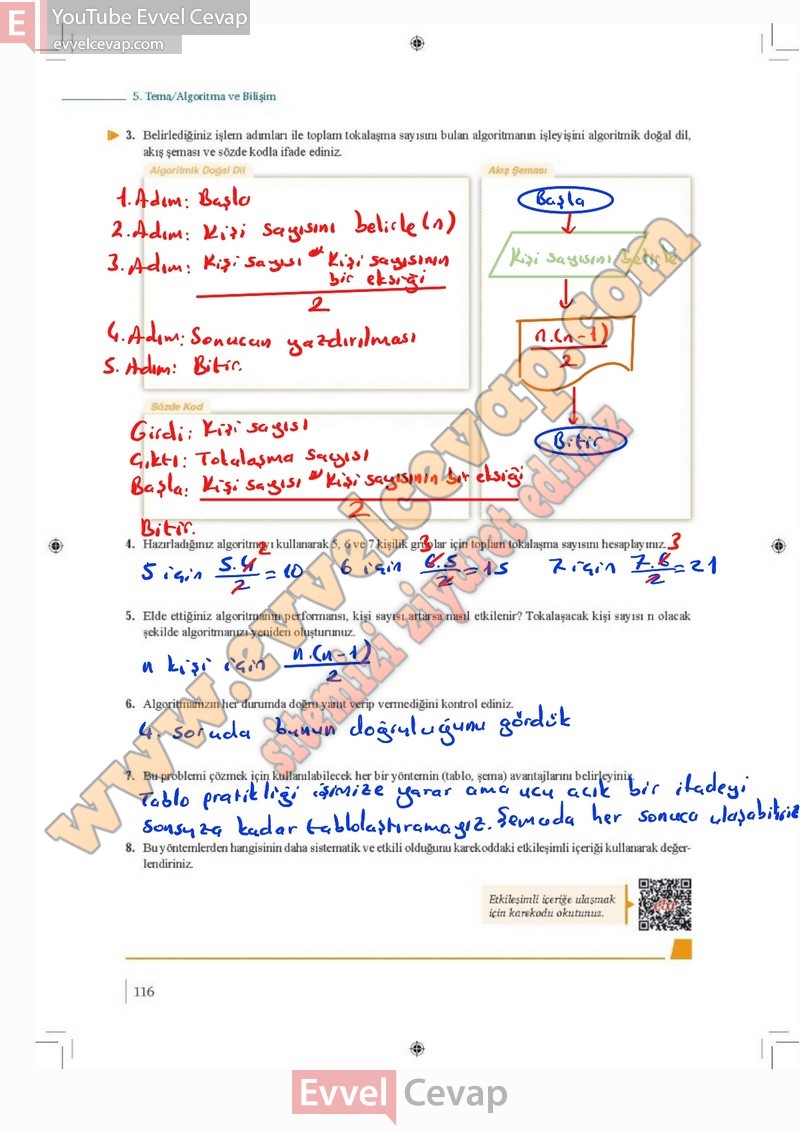 E YouTube Evvel Cevap
evvelcevap.com
5. Tema/Algoritma ve Bilişim
3. Belirlediğiniz işlem adımları ile toplam tokalaşma sayısını bulan algoritmanın işleyişini algoritmik doğal dil,
akış şeması ve sözde kodla ifade ediniz.
Algoritmik Doğal Dil
1. Adım: Başla
2. Adım: Kişi sayısını belirle (n)
3. Adım: Kişi sayısı * Kişi sayısının
bir eksiği
2
4. Adım: Sonucun yazdırılması
5. Adım: Bitir.
Akış Şeması
Başla
Kişi sayısını belirle
n.(n-1)
2
Bitir
Sözde Kod
Girdi: Kişi sayısı
Çıktı: Tokalaşma sayısı
Başla: Kişi sayısı * Kişi sayısının bir eksiği
2
Bitir.
4. Hazırladığınız algoritmayı kullanarak 5, 6 ve 7 kişilik gruplar için toplam tokalaşma sayısını hesaplayınız.
5 için 5.4/2 = 10 6 için 6.5/2 = 15 7 için 7.6/2 = 21
2 3 3
5. Elde ettiğiniz algoritmanın performansı, kişi sayısı artarsa nasıl etkilenir? Tokalaşacak kişi sayısı n olacak
şekilde algoritmanızı yeniden oluşturunuz.
n kişi için n.(n-1)/2
6. Algoritmanızın her durumda doğru yanıt verip vermediğini kontrol ediniz.
4. soruda bunun doğruluğunu gördük
7. Bu problemi çözmek için kullanılabilecek her bir yöntemin (tablo, şema) avantajlarını belirleyiniz.
Tablo pratikliği işimize yarar ama ucu açık bir ifadeyi
sonsuza kadar tablolaştıramayız. Şemada her sonuca ulaşabiliriz
8. Bu yöntemlerden hangisinin daha sistematik ve etkili olduğunu karekoddaki etkileşimli içeriği kullanarak değer-
lendiriniz.
Etkileşimli içeriğe ulaşmak
için karekodu okutunuz.
116
www.evvelcevap.com
sitemizi ziyaret ediniz
Evvel Cevap